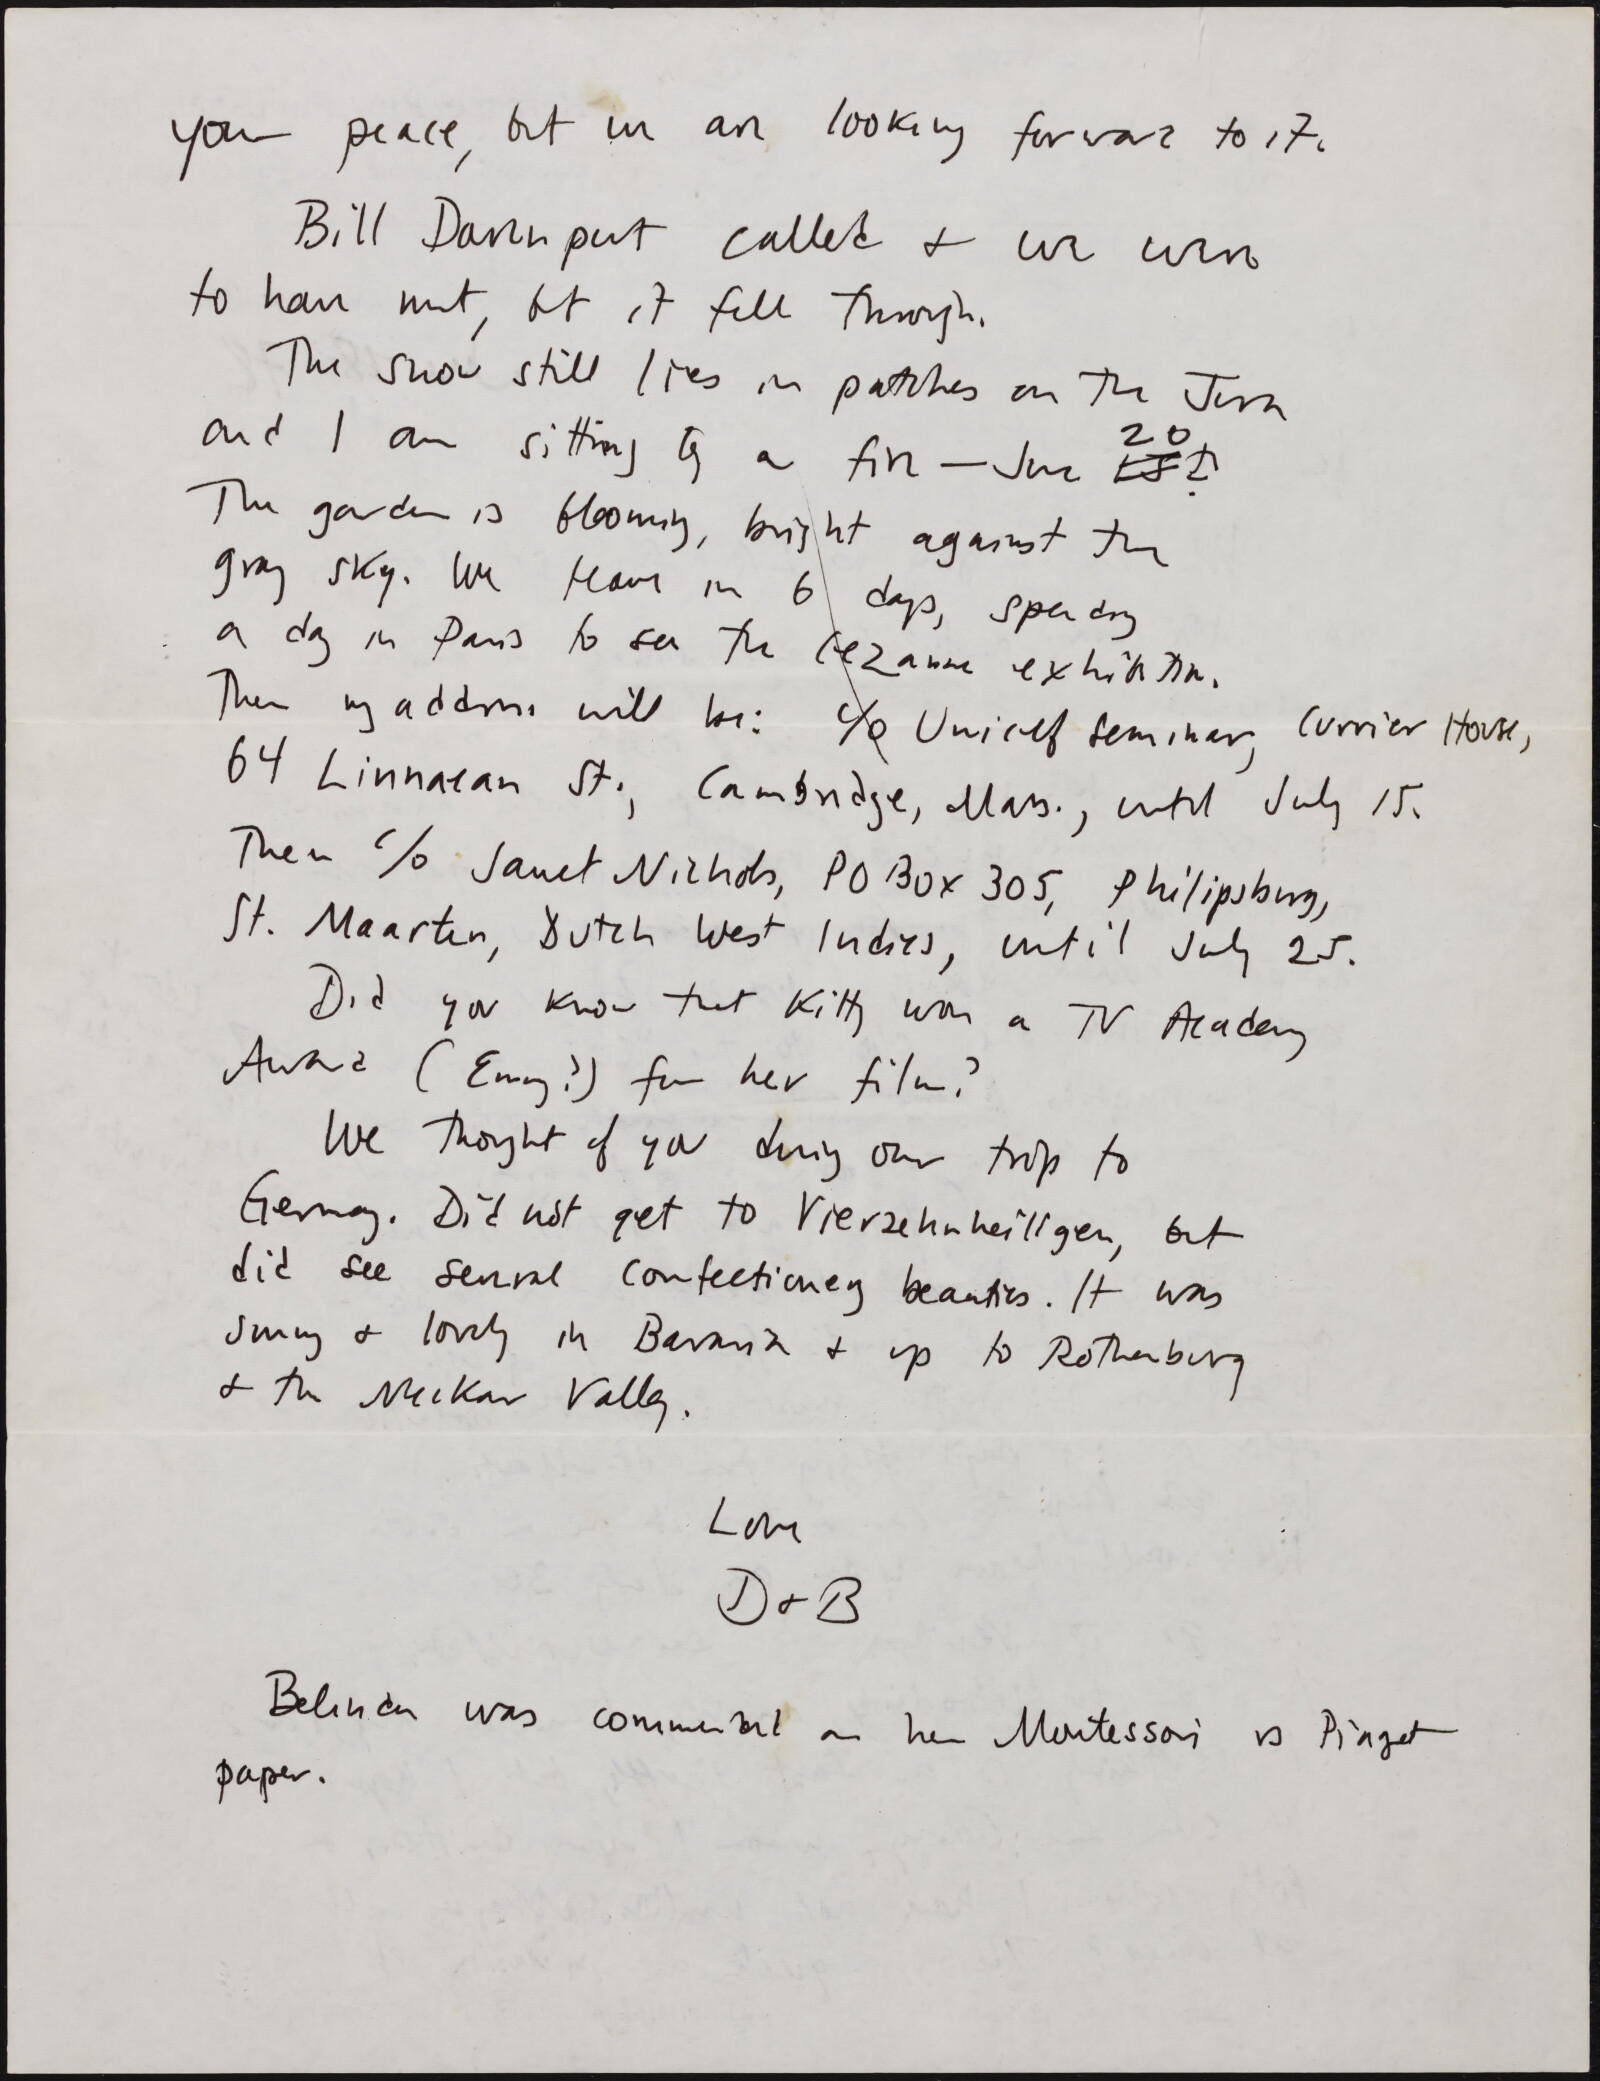 your peace, but we are looking forward to it.
Bill Davenport called & we were
to have met, but it fell through.
The snow still lies in patches on the Jura
and I am sitting by a fire — June 20!
The garden is blooming, bright against the
gray sky. We leave in 6 days, spending
a day in Paris to see the Cezanne exhibition.
Then my address will be: c/o Unicef Seminar, Currier House,
64 Linnaean St., Cambridge, Mass., until July 15.
Then c/o Janet Nichols, PO Box 305, Philipsburg,
St. Maarten, Dutch West Indies, until July 25.
Did you know that Kitty won a TV Academy
Award (Emmy?) for her film?
We thought of you during our trip to
Germany. Did not get to Vierzehnheiligen, but
did see several confectionery beauties. It was
sunny & lovely in Bavaria & up to Rothenburg
& the Neckar Valley.
Love
D & B
Belinda was commended on her Montessori vs Piaget
paper.